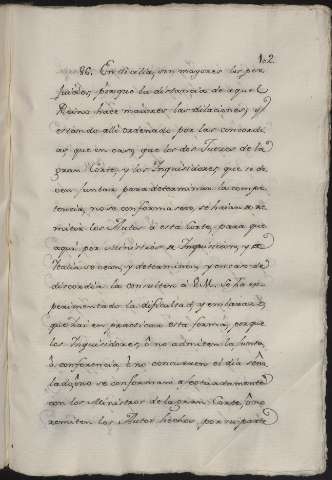 102
86. En Sicilia, son mayores los per
juicios, porque la distancia de aquel
Reino hace maiores las dilaciones, y
estando alli ordenado por las concordi
as, que en caso, que los dos Jueces de la
gran Corte, y los Inquisidores que se de
ven juntar para determinar la compe
tencia, no se conformasen, se haian de re
mitir los Autos à esta Corte, para que
aqui por Ministros de Inquisicion, y de
Italia se vean, y determinen, y en caso de
discordia la consulten à V.M. Se ha ex
perimentado la dificultad, y embarazo,
que hai en practicar esta forma, porque
los Inquisidores, ò no admiten la junta,
ò conferencia, ò no concurren el dia seña
lado, ò no se conforman afectadamente
con los Ministros de la gran Corte, ò no
remiten los Autos hechos, por su parte